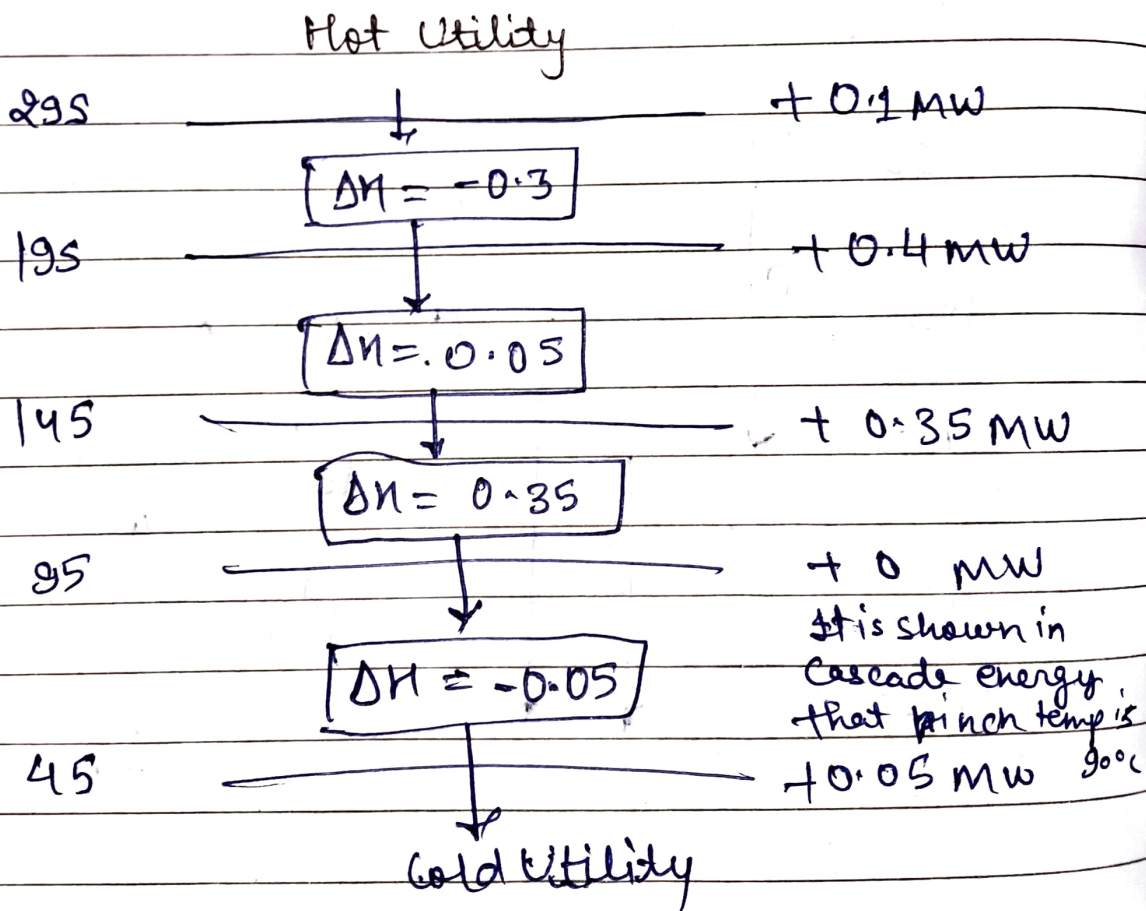 Hot Utility
295 + 0.1 MW
ΔH = -0.3
195 + 0.4 MW
ΔH =. 0.05
145 + 0.35 MW
ΔH = 0.35
95 + 0 MW
It is shown in
Cascade energy
ΔH = -0.05
that pinch temp is
90°C
45 +0.05 MW
Cold Utility